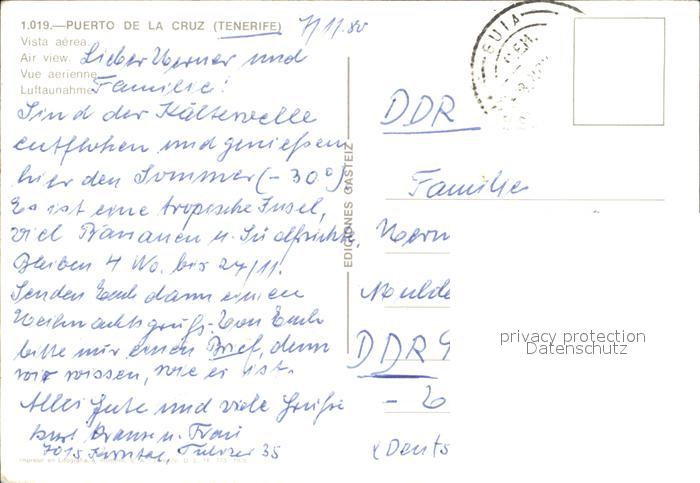 1.019.—PUERTO DE LA CRUZ (TENERIFE) 7/11.80
Vista aérea
Air view. Lieber Werner und
Vue aérienne
Luftaunahme Familie!
Sind der Kältewelle
entflohen und genießen
hier den Sommer (-30°)
Es ist eine tropische Insel,
viel Bananen u. Südfrüchte,
Bleiben 4 Wo. bis 27/11.
Senden Euch dann einen
Weihnachtsgruß. Von Euch
bitte nur einen Brief, denn
wir wissen, wie es ist.
Alles Gute und viele Grüße
Kurt Krause u. Frau
7015 Korntal, 35
EDICIONES GASTEIZ
GUIA
DDR
Familie
Wern
Mulde
DDR 9
(Deuts
privacy protection
Datenschutz